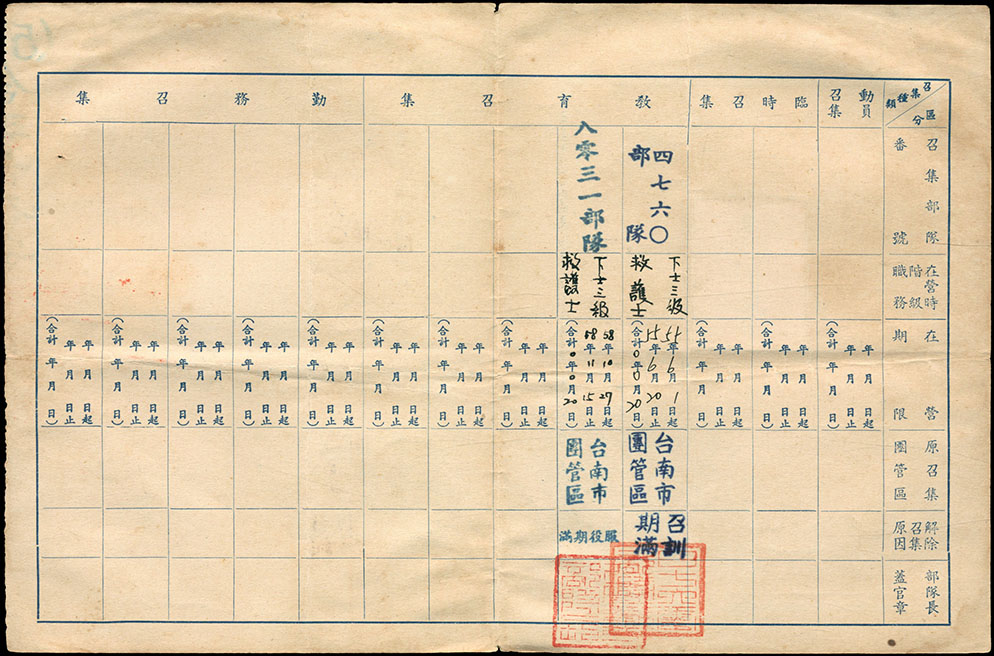 召集種類
區分
動員召集
臨時召集
教育召集
勤務召集
召集部隊番號
四七六〇部隊
八零三一部隊
在營時階級職務
下士三級
救護士
下士三級
救護士
在營期限
年月日起
年月日止
(合計年月日)
年月日起
年月日止
(合計年月日)
年月日起
年月日止
(合計年月日)
55年6月1日起
55年6月20日止
(合計0年0月20日)
58年10月27日起
58年11月15日止
(合計0年0月20日)
年月日起
年月日止
(合計年月日)
年月日起
年月日止
(合計年月日)
年月日起
年月日止
(合計年月日)
年月日起
年月日止
(合計年月日)
年月日起
年月日止
(合計年月日)
年月日起
年月日止
(合計年月日)
年月日起
年月日止
(合計年月日)
年月日起
年月日止
(合計年月日)
原召集團管區
台南市
團管區
台南市
團管區
解除召集原因
召訓期滿
服役期滿
部隊長蓋官章